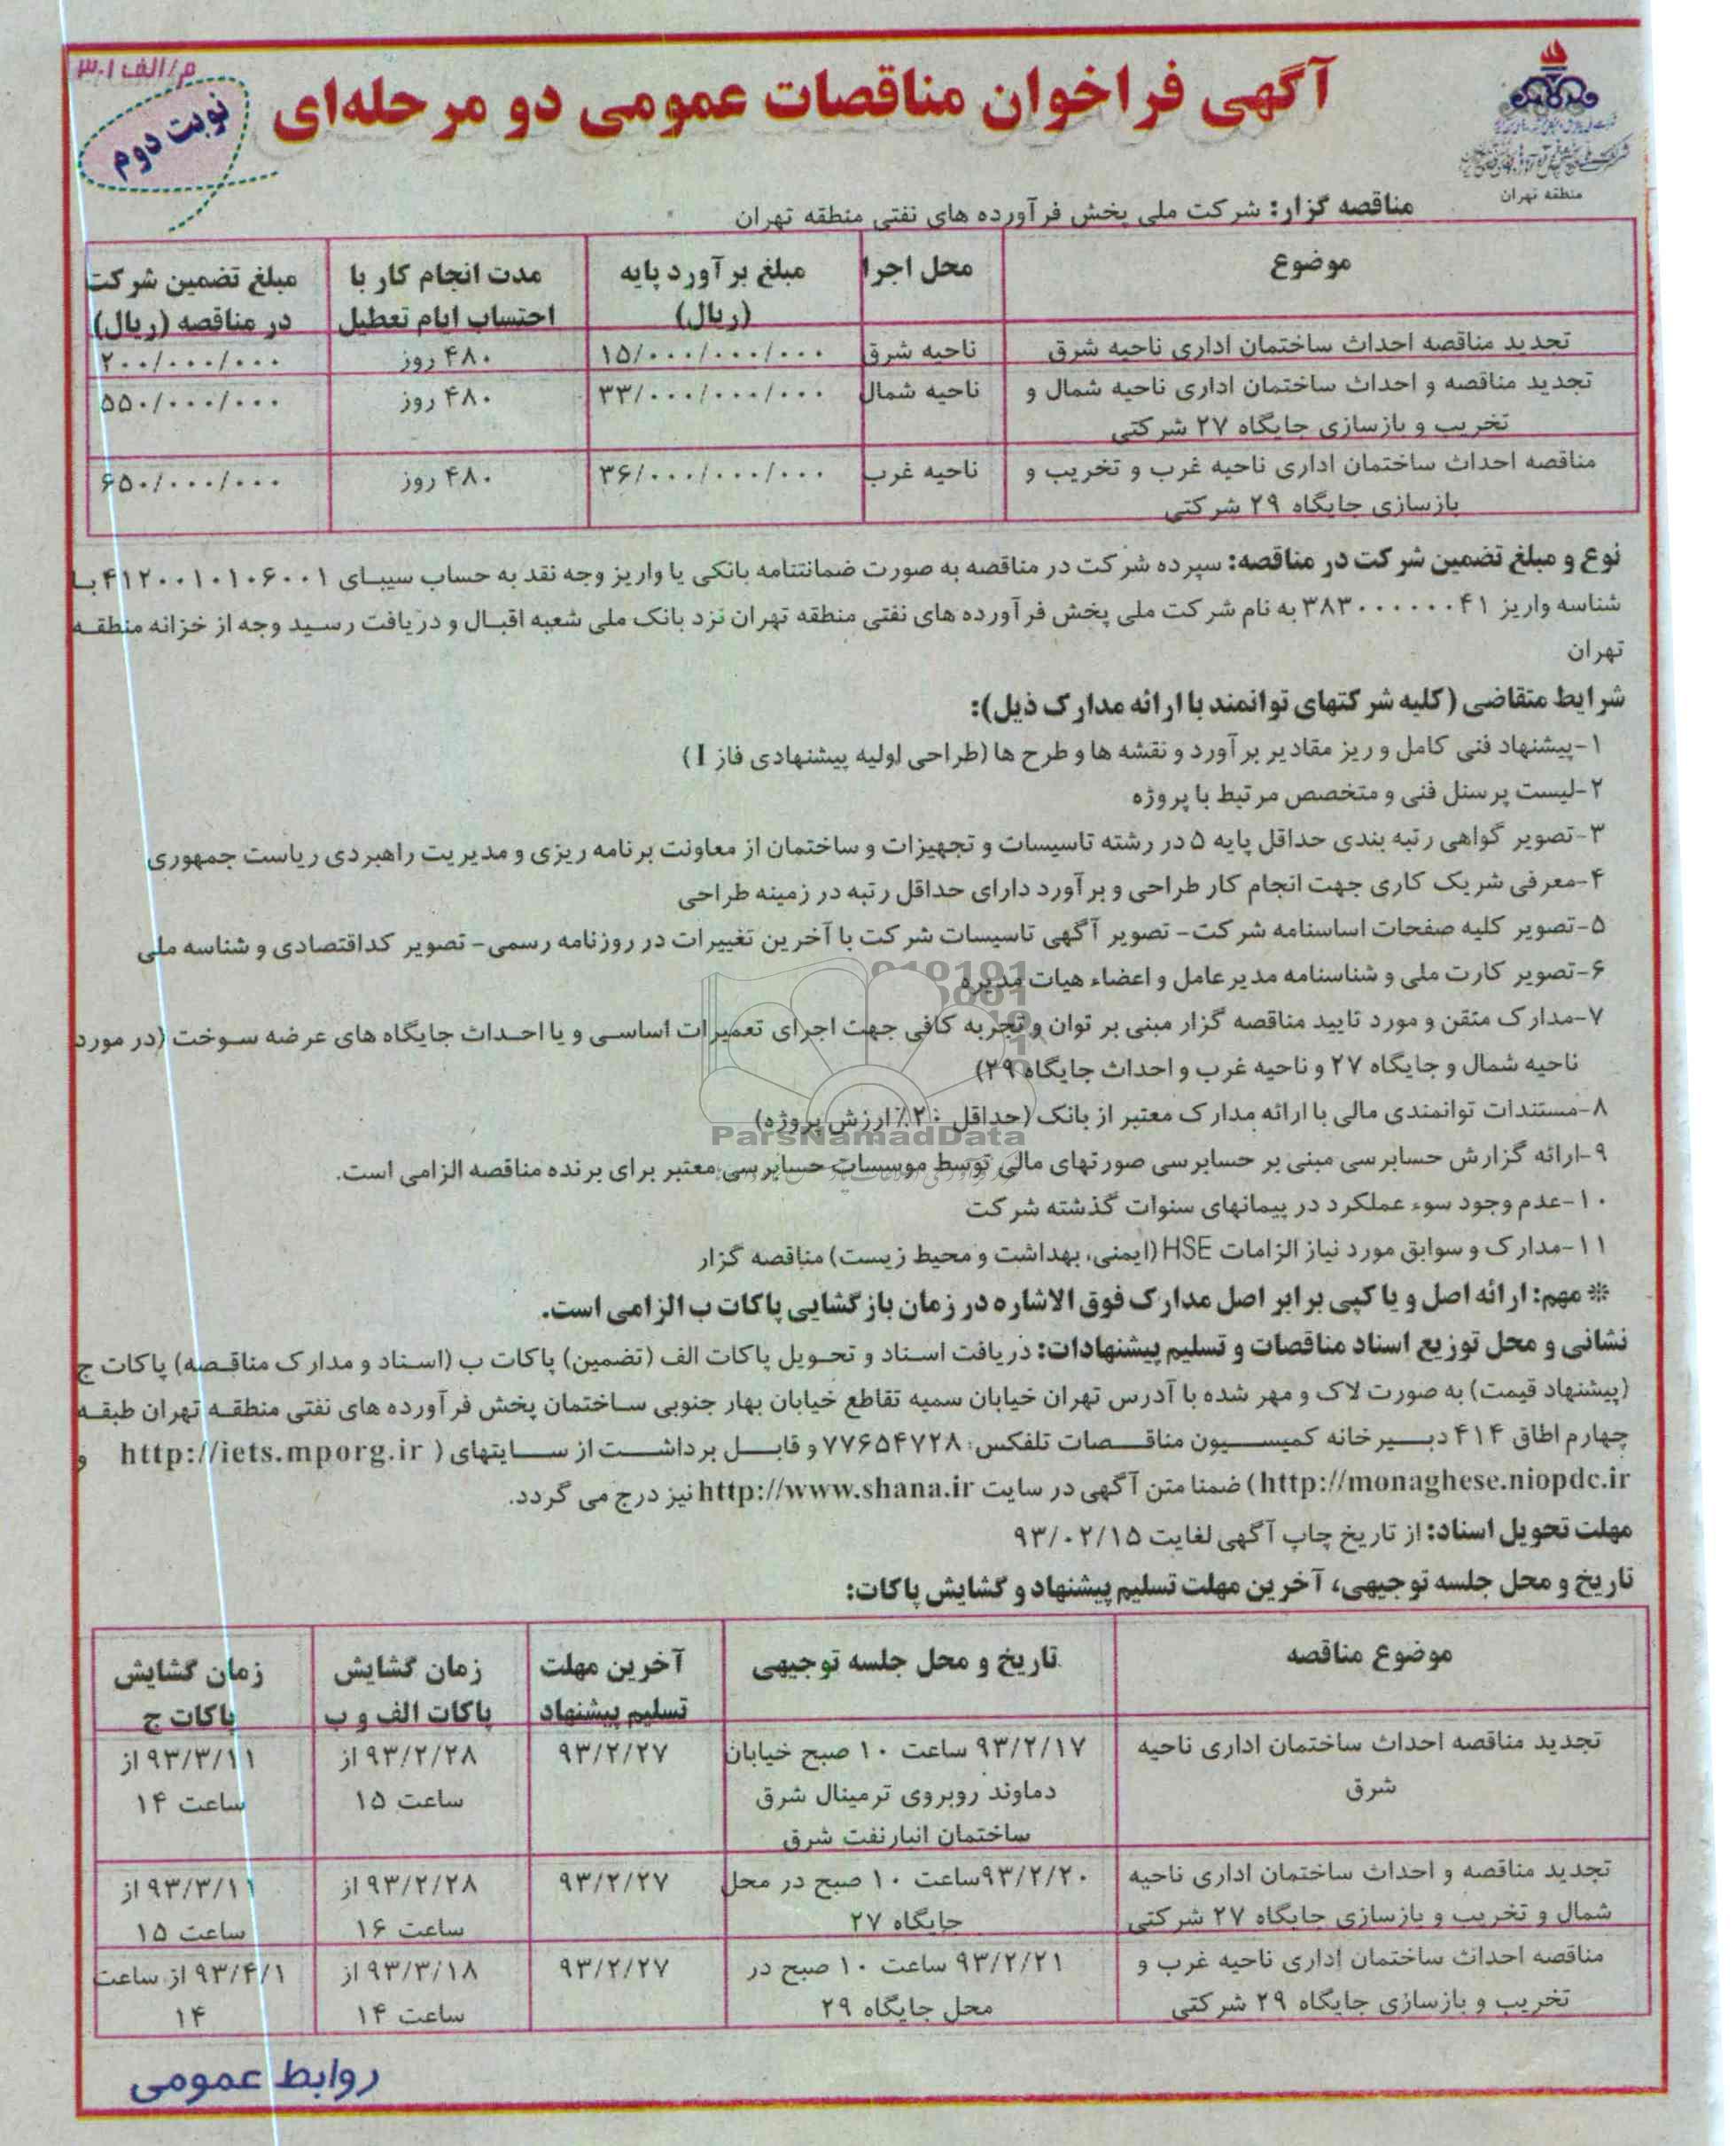 م/الف ۳۰۱
آگهی فراخوان مناقصات عمومی دو مرحله‌ای
نوبت دوم
منطقه تهران
مناقصه گزار: شرکت ملی پخش فرآورده های نفتی منطقه تهران
موضوع | محل اجرا | مبلغ برآورد پایه (ریال) | مدت انجام کار با احتساب ایام تعطیل | مبلغ تضمین شرکت در مناقصه (ریال)
تجدید مناقصه احداث ساختمان اداری ناحیه شرق | ناحیه شرق | ۱۵/۰۰۰/۰۰۰/۰۰۰ | ۴۸۰ روز | ۲۰۰/۰۰۰/۰۰۰
تجدید مناقصه و احداث ساختمان اداری ناحیه شمال و تخریب و بازسازی جایگاه ۲۷ شرکتی | ناحیه شمال | ۳۳/۰۰۰/۰۰۰/۰۰۰ | ۴۸۰ روز | ۵۵۰/۰۰۰/۰۰۰
مناقصه احداث ساختمان اداری ناحیه غرب و تخریب و بازسازی جایگاه ۲۹ شرکتی | ناحیه غرب | ۳۶/۰۰۰/۰۰۰/۰۰۰ | ۴۸۰ روز | ۶۵۰/۰۰۰/۰۰۰
نوع و مبلغ تضمین شرکت در مناقصه: سپرده شرکت در مناقصه به صورت ضمانتنامه بانکی یا واریز وجه نقد به حساب سیبای ۴۱۲۰۰۱۰۱۰۶۰۰۱ با
شناسه واریز ۳۸۳۰۰۰۰۰۰۴۱ به نام شرکت ملی پخش فرآورده های نفتی منطقه تهران نزد بانک ملی شعبه اقبال و دریافت رسید وجه از خزانه منطقه
تهران
شرایط متقاضی (کلیه شرکتهای توانمند با ارائه مدارک ذیل):
۱-پیشنهاد فنی کامل و ریز مقادیر برآورد و نقشه ها و طرح ها (طراحی اولیه پیشنهادی فاز I)
۲-لیست پرسنل فنی و متخصص مرتبط با پروژه
۳-تصویر گواهی رتبه بندی حداقل پایه ۵ در رشته تاسیسات و تجهیزات و ساختمان از معاونت برنامه ریزی و مدیریت راهبردی ریاست جمهوری
۴-معرفی شریک کاری جهت انجام کار طراحی و برآورد دارای حداقل رتبه در زمینه طراحی
۵-تصویر کلیه صفحات اساسنامه شرکت- تصویر آگهی تاسیسات شرکت با آخرین تغییرات در روزنامه رسمی- تصویر کداقتصادی و شناسه ملی
۶-تصویر کارت ملی و شناسنامه مدیرعامل و اعضاء هیات مدیره
۷-مدارک متقن و مورد تایید مناقصه گزار مبنی بر توان و تجربه کافی جهت اجرای تعمیرات اساسی و یا احداث جایگاه های عرضه سوخت (در مورد
ناحیه شمال و جایگاه ۲۷ و ناحیه غرب و احداث جایگاه ۲۹)
۸-مستندات توانمندی مالی با ارائه مدارک معتبر از بانک (حداقل ۲۰٪ ارزش پروژه)
ParsNamadData
۹-ارائه گزارش حسابرسی مبنی بر حسابرسی صورتهای مالی توسط موسسات حسابرسی معتبر برای برنده مناقصه الزامی است.
۱۰-عدم وجود سوء عملکرد در پیمانهای سنوات گذشته شرکت
۱۱-مدارک و سوابق مورد نیاز الزامات HSE (ایمنی، بهداشت و محیط زیست) مناقصه گزار
* مهم: ارائه اصل و یا کپی برابر اصل مدارک فوق الاشاره در زمان بازگشایی پاکات ب الزامی است.
نشانی و محل توزیع اسناد مناقصات و تسلیم پیشنهادات: دریافت اسناد و تحویل پاکات الف (تضمین) پاکات ب (اسناد و مدارک مناقصه) پاکات ج
(پیشنهاد قیمت) به صورت لاک و مهر شده با آدرس تهران خیابان سمیه تقاطع خیابان بهار جنوبی ساختمان پخش فرآورده های نفتی منطقه تهران طبقه
چهارم اطاق ۴۱۴ دبیرخانه کمیسیون مناقصات تلفکس: ۷۷۶۵۴۷۲۸ و قابل برداشت از سایتهای ( http://iets.mporg.ir و
http://monaghese.niopdc.ir) ضمنا متن آگهی در سایت http://www.shana.ir نیز درج می گردد.
مهلت تحویل اسناد: از تاریخ چاپ آگهی لغایت ۹۳/۰۲/۱۵
تاریخ و محل جلسه توجیهی، آخرین مهلت تسلیم پیشنهاد و گشایش پاکات:
موضوع مناقصه | تاریخ و محل جلسه توجیهی | آخرین مهلت تسلیم پیشنهاد | زمان گشایش پاکات الف و ب | زمان گشایش پاکات ج
تجدید مناقصه احداث ساختمان اداری ناحیه شرق | ۹۳/۲/۱۷ ساعت ۱۰ صبح خیابان دماوند روبروی ترمینال شرق ساختمان انبارنفت شرق | ۹۳/۲/۲۷ | ۹۳/۲/۲۸ از ساعت ۱۵ | ۹۳/۳/۱۱ از ساعت ۱۴
تجدید مناقصه و احداث ساختمان اداری ناحیه شمال و تخریب و بازسازی جایگاه ۲۷ شرکتی | ۹۳/۲/۲۰ساعت ۱۰ صبح در محل جایگاه ۲۷ | ۹۳/۲/۲۷ | ۹۳/۲/۲۸ از ساعت ۱۶ | ۹۳/۳/۱۱ از ساعت ۱۵
مناقصه احداث ساختمان اداری ناحیه غرب و تخریب و بازسازی جایگاه ۲۹ شرکتی | ۹۳/۲/۲۱ ساعت ۱۰ صبح در محل جایگاه ۲۹ | ۹۳/۲/۲۷ | ۹۳/۳/۱۸ از ساعت ۱۴ | ۹۳/۴/۱ از ساعت ۱۴
روابط عمومی